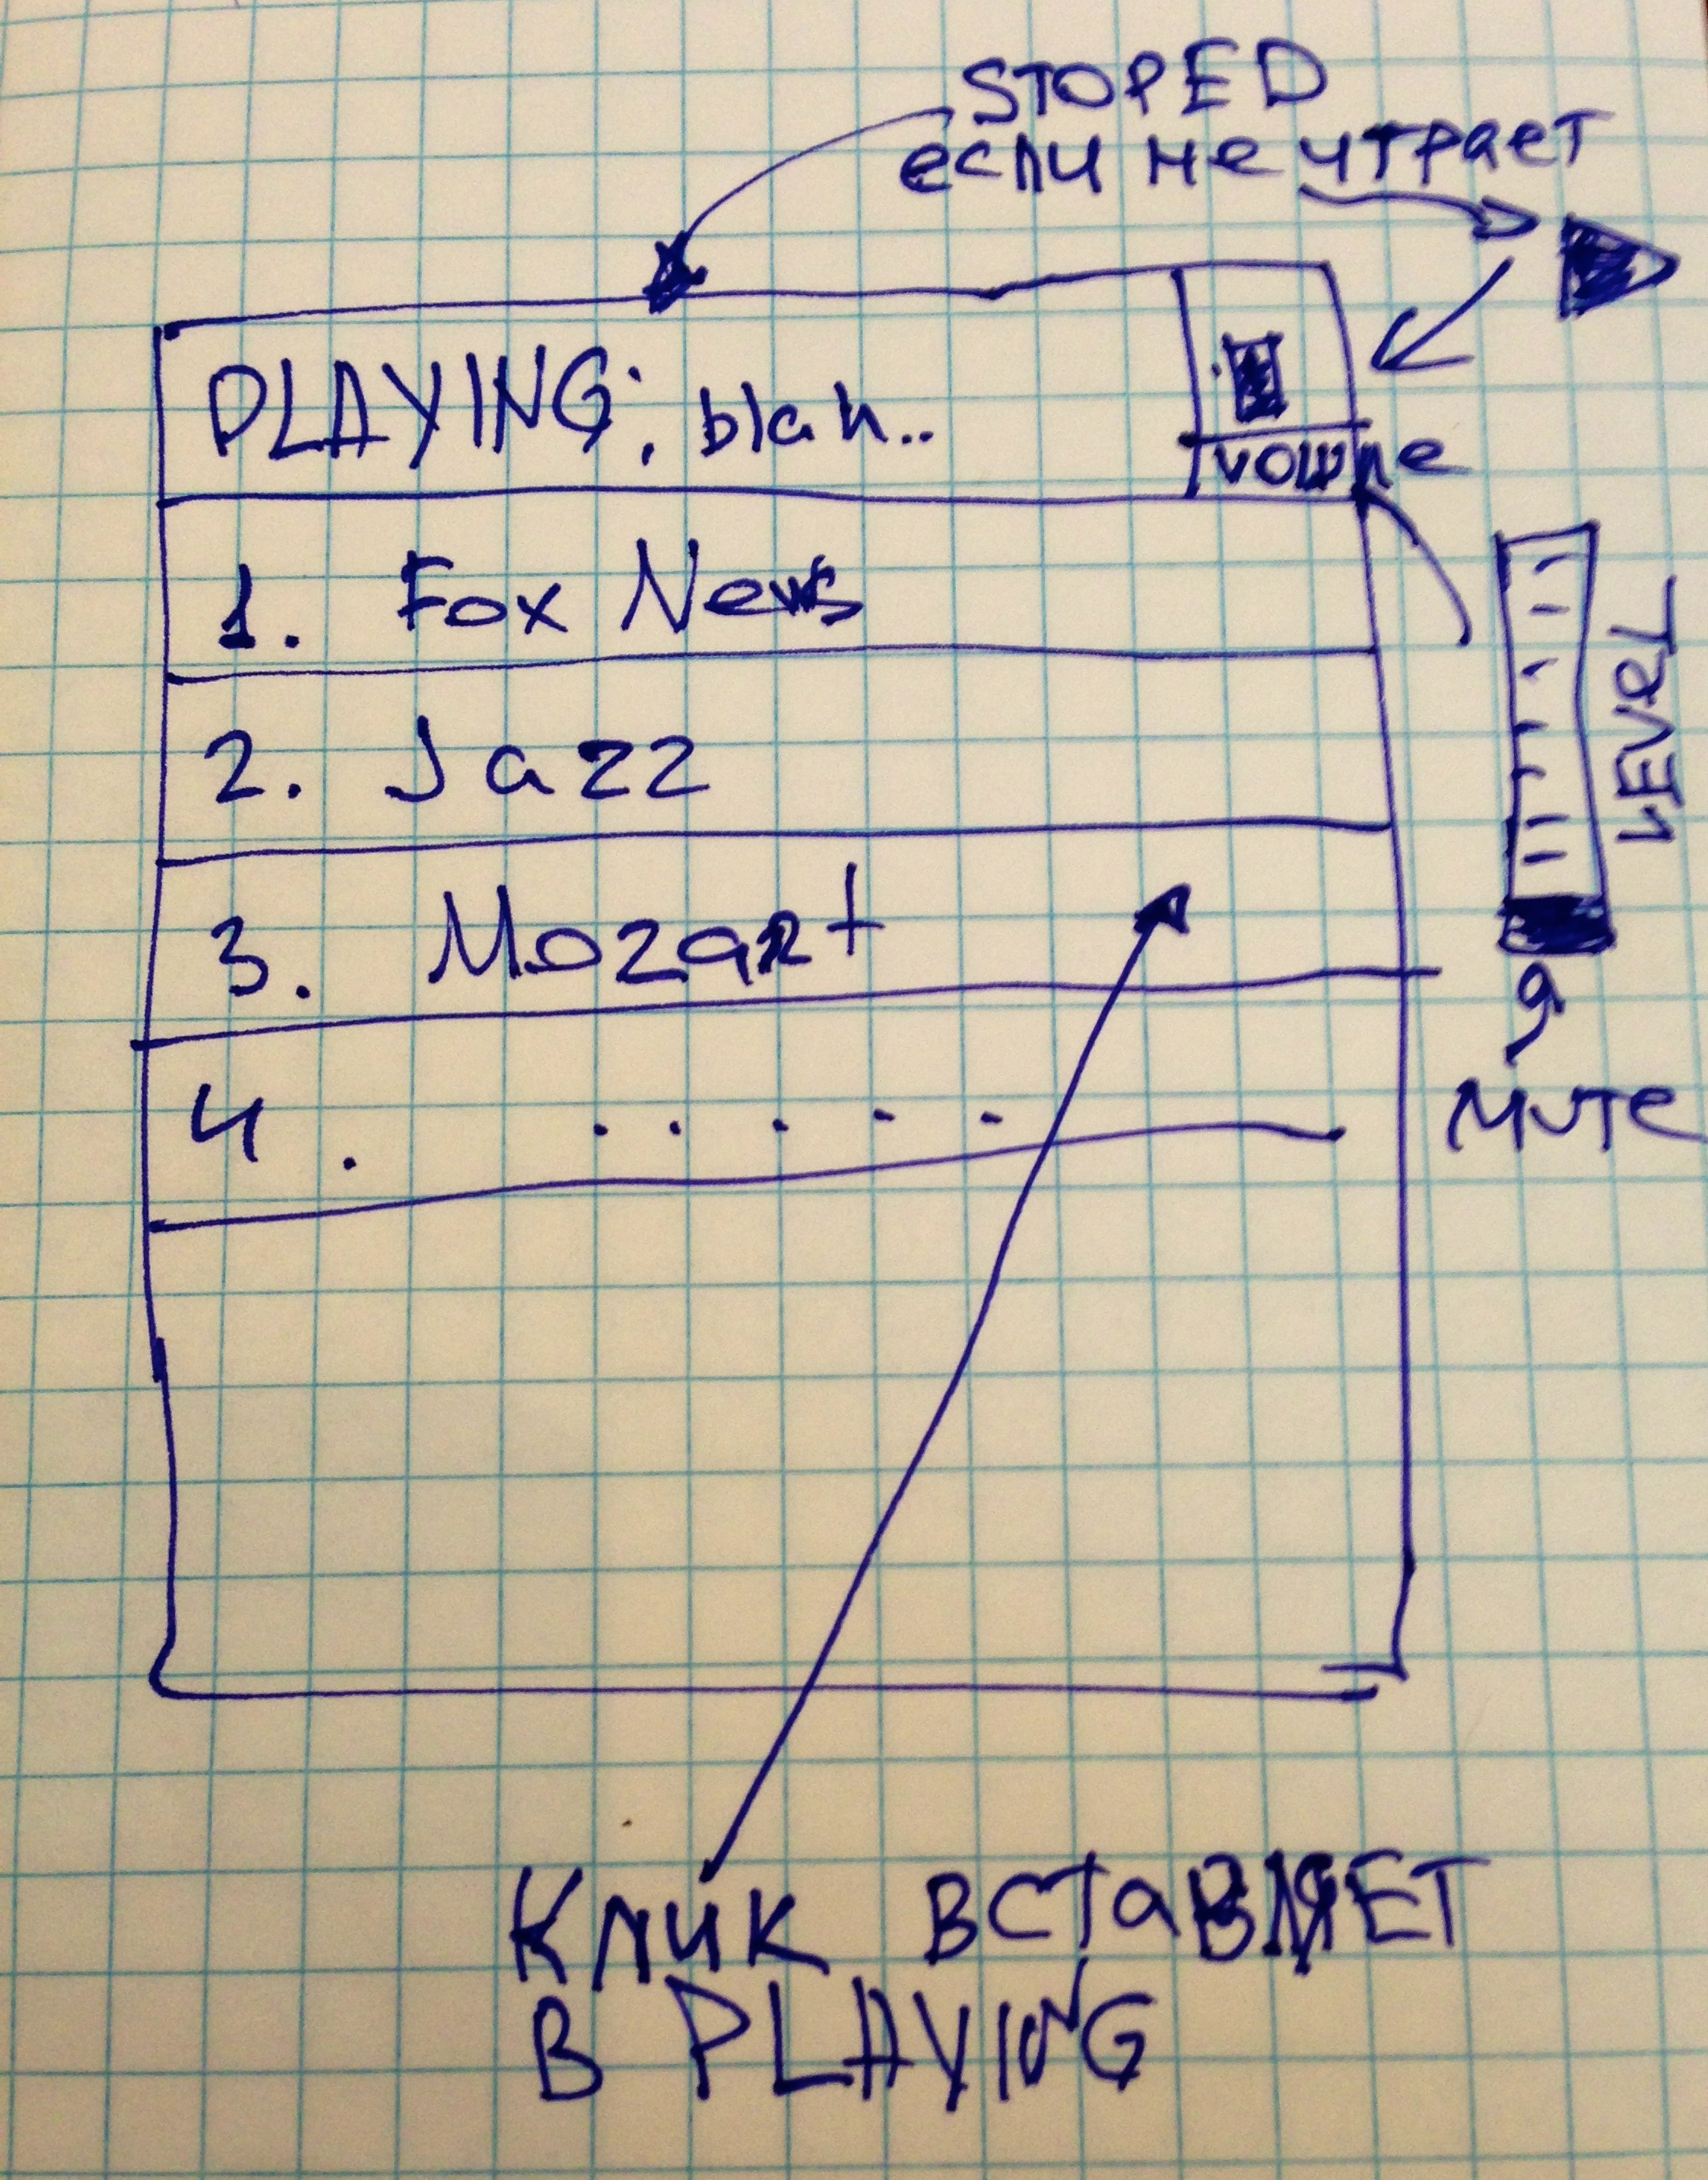 STOPED
если не играет
PLAYING: blah..
volume
1. Fox News
2. Jazz
3. Mozart
4. . . . . .
LEVEL
MUTE
Клик вставляет
в PLAYING